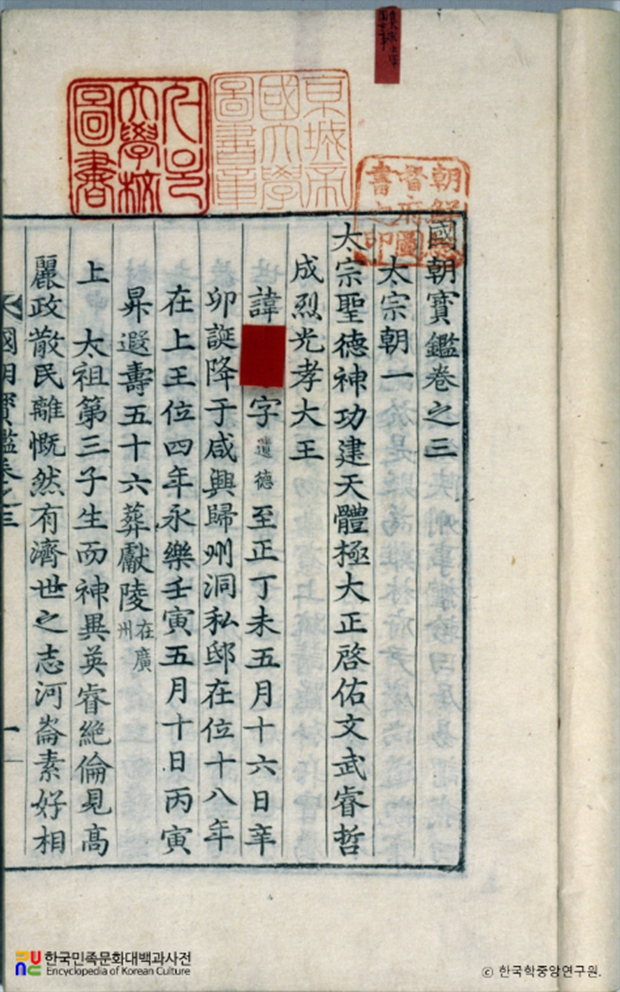 京城帝國大學圖書章
大學校圖書
朝鮮總督府圖書之印
國朝寶鑑卷之三
太宗朝一
太宗聖德神功建天體極大正啓佑文武睿哲
成烈光孝大王
諱 字遺德至正丁未五月十六日辛
卯誕降于咸興歸州洞私邸在位十八年
在上王位四年永樂壬寅五月十日丙寅
昇遐壽五十六葬獻陵在廣州
上 太祖第三子生而神異英睿絶倫見高
麗政散民離慨然有濟世之志河崙素好相
國朝寶鑑卷之三 一
한국민족문화대백과사전
Encyclopedia of Korean Culture
ⓒ 한국학중앙연구원.